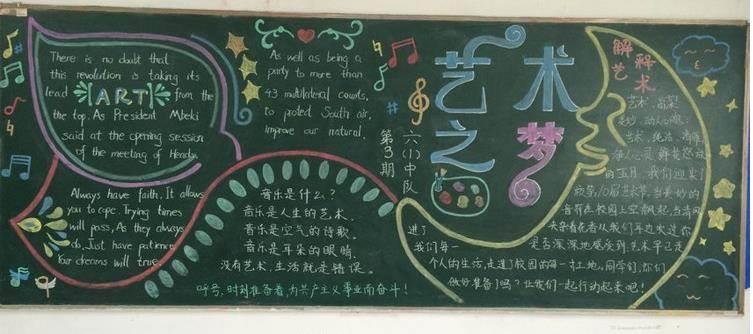 There is no doubt that
this revolution is taking its
lead [ART] from the
the top. As President Mbeki
said at the opening session
of the meeting of Heads,
As well as being a
party to more than
43 multilateral
to protect South air,
improve our natural.
艺术之梦
六(1)中队
第3期
Always have faith. It allows
you to cope. Trying times
will pass, As they always
do, Just have patience
Your dreams will true
音乐是什么?
音乐是人生的艺术.
音乐是空气的诗歌.
音乐是耳朵的眼睛
没有艺术,生活就是错误.
呼号,时刻准备着,为共产主义事业而奋斗!
解释艺术
艺术,高架
艺术,纯洁,
的五月,我们迎来了
艺术节,当美妙的
音符在校园上空飘起,当清风
是否深深地感受到,艺术早已走
进了
我们每一
个人的生活,走进了校园的每一寸土地。同学们,你们
做好准备了吗?让我们一起行动起来吧!